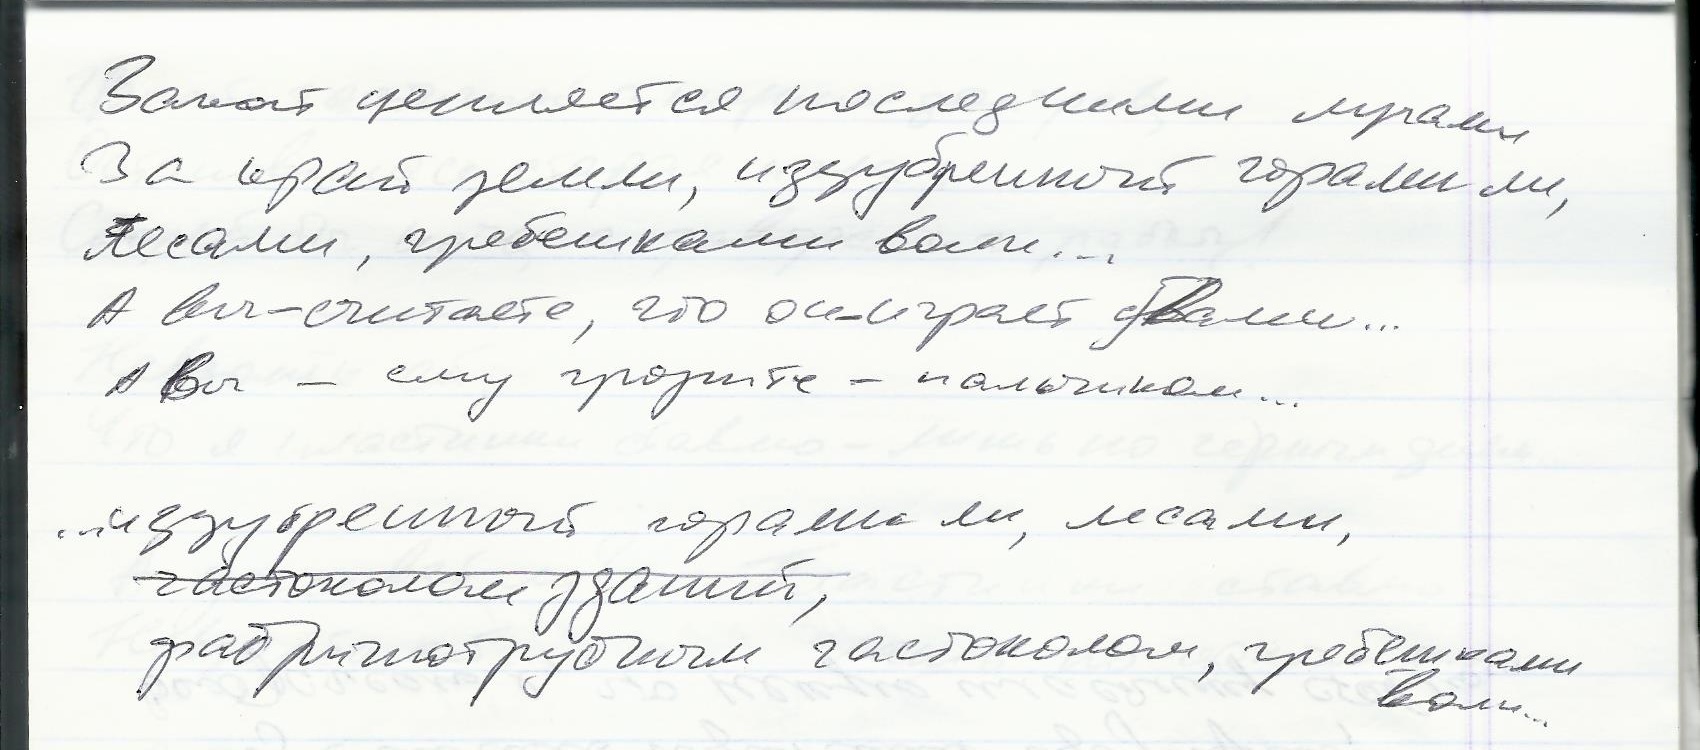 Закат цепляется последними лучами
За край земли, иззубренной горами ли,
Лесами, гребешками волн...
А вы-считаете, что он-играет с Вами...
А Вы – ему грозите – пальчиком...
...иззубренной горами ли, лесами,
частоколом зданий,
фабричнотрубным частоколом, гребешками
волн...